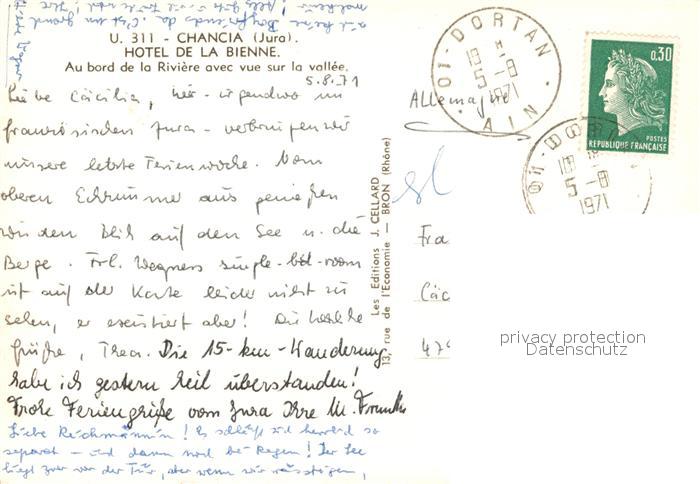 U. 311 - CHANCIA (Jura).
HOTEL DE LA BIENNE.
Au bord de la Rivière avec vue sur la vallée.
5.8.71
Liebe Cäcilia, hier - irgendwo im
französischen Jura - verbringen wir
unsere letzte Ferienwoche. Vom
oberen Eckzimmer aus genießen
wir den Blick auf den See u. die
Berge. Frl. Wagners single-bed-room
ist auf der Karte leider nicht zu
sehen, er existiert aber! Die herzliche
Grüße, Thea. Die 15-km-Wanderung
habe ich gestern heil überstanden!
Frohe Feriengrüße vom Jura Ihre M.
Liebe Reichmännin! Es schläft sich herrlich so
separat - und dann noch bei Regen! Der See
liegt zwar vor der Tür, aber wenn wir
Les Editions J. CELLARD
13, rue de l'Economie — BRON (Rhône)
Allemagne
01-DORTAN
5-8
1971
AIN
0,30
POSTES
REPUBLIQUE FRANÇAISE
5-8
1971
Fra
Cäc
479
privacy protection
Datenschutz